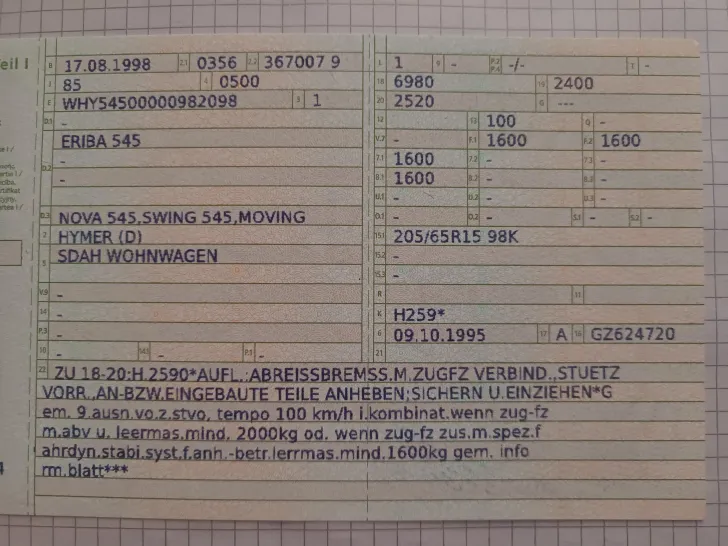 eil I
B 17.08.1998 2.1 0356 2.2 367007 9 L 1 9 - P.2 P.4 -/- T -
J 85 4 0500 18 6980 19 2400
E WHY54500000982098 3 1 20 2520 G ---
D.1 - 12 13 100 Q -
ERIBA 545 V.7 - F.1 1600 F.2 1600
D.2 - 7.1 1600 7.2 - 7.3 -
- 8.1 1600 8.2 - 8.3 -
U.1 - U.2 - U.3 -
D.3 NOVA 545,SWING 545,MOVING O.1 - O.2 - S.1 - S.2 -
2 HYMER (D) 15.1 205/65R15 98K
5 SDAH WOHNWAGEN 15.2 -
15.3 -
V.9 - R 11
14 - K H259*
P.3 - 6 09.10.1995 17 A 16 GZ624720
10 - 14.1 - P.1 - 21
22 ZU 18-20:H.2590*AUFL.:ABREISSBREMSS.M.ZUGFZ VERBIND.,STUETZ
VORR.,AN-BZW.EINGEBAUTE TEILE ANHEBEN;SICHERN U.EINZIEHEN*G
em. 9.ausn.vo.z.stvo, tempo 100 km/h i.kombinat.wenn zug-fz
m.abv u. leermas.mind. 2000kg od. wenn zug-fz zus.m.spez.f
ahrdyn.stabi.syst.f.anh.-betr.lerrmas.mind.1600kg gem. info
rm.blatt***